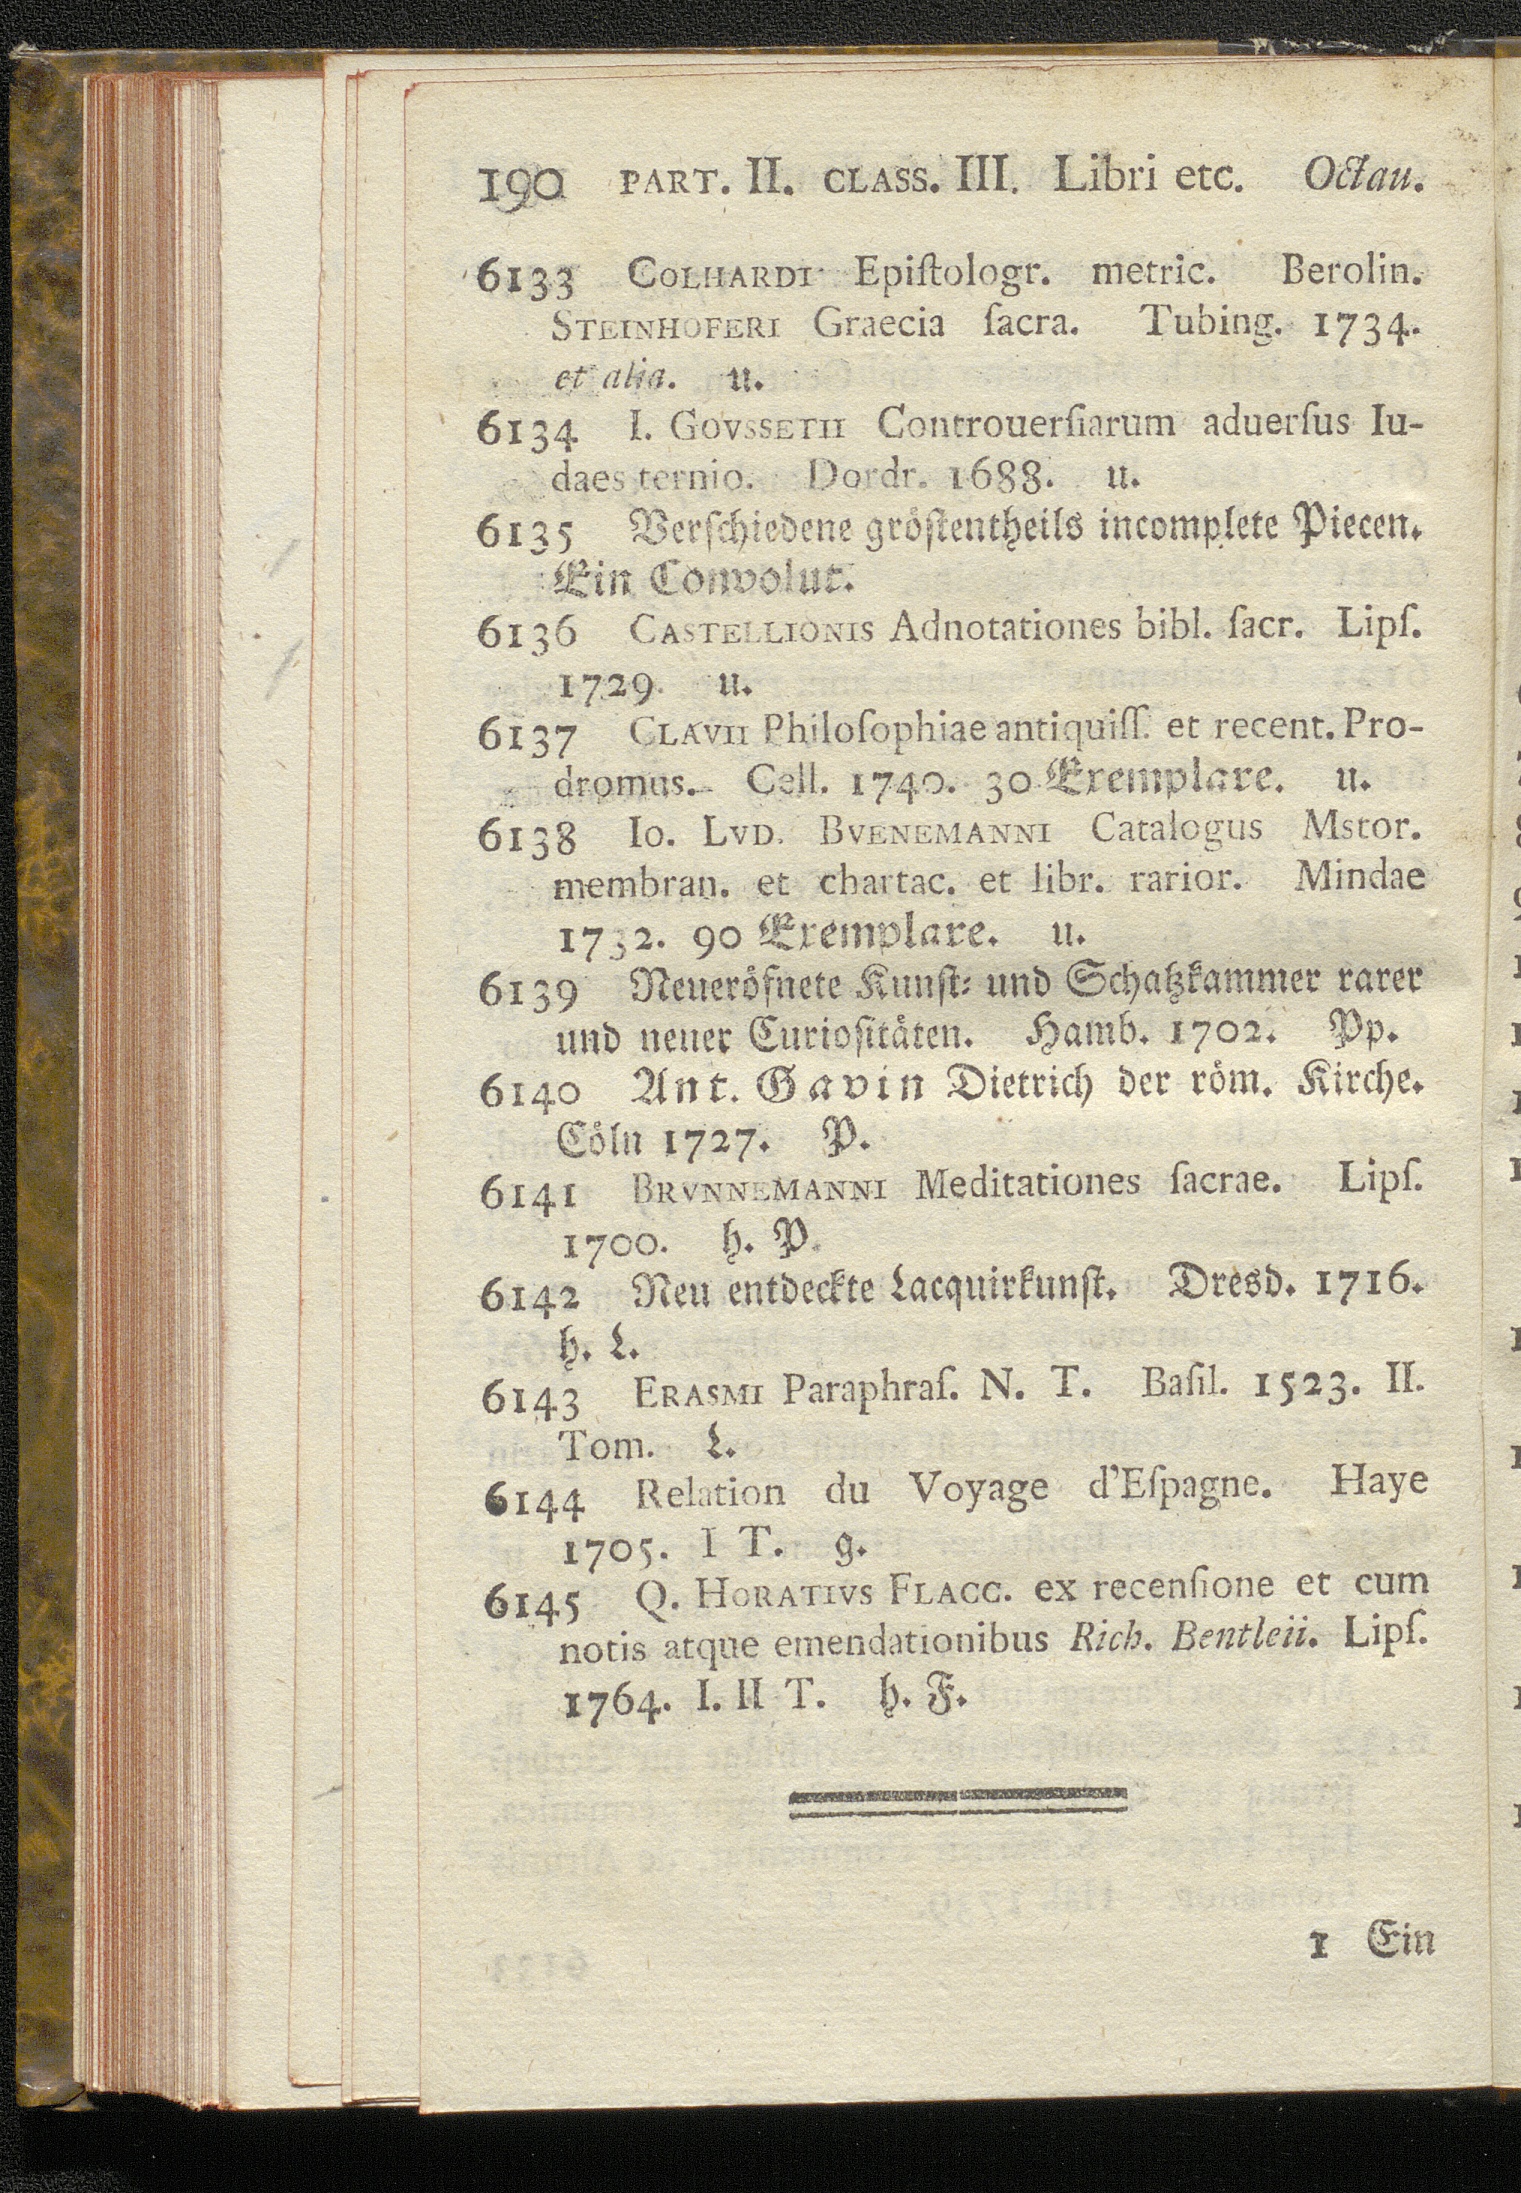 190 PART. II. CLASS. III. Libri etc. Octau.
6133 COLHARDI Epiſtologr. metric. Berolin.
STEINHOFERI Graecia ſacra. Tubing. 1734.
et alia. u.
6134 I. GOVSSETII Controuerſiarum aduerſus Iu-
daes ternio. Dordr. 1688. u.
6135 Verſchiedene gröſtentheils incomplete Piecen.
Ein Convolut.
6136 CASTELLIONIS Adnotationes bibl. ſacr. Lipſ.
1729. u.
6137 CLAVII Philoſophiae antiquiſſ. et recent. Pro-
dromus. Cell. 1740. 30 Exemplare. u.
6138 Io. LVD. BVENEMANNI Catalogus Mstor.
membran. et chartac. et libr. rarior. Mindae
1732. 90 Exemplare. u.
6139 Neueröfnete Kunſt- und Schatzkammer rarer
und neuer Curioſitäten. Hamb. 1702. Pp.
6140 Ant. Gavin Dietrich der röm. Kirche.
Cöln 1727. P.
6141 BRVNNEMANNI Meditationes ſacrae. Lipſ.
1700. h. P.
6142 Neu entdeckte Lacquirkunſt. Dresd. 1716.
h. L.
6143 ERASMI Paraphraſ. N. T. Baſil. 1523. II.
Tom. L.
6144 Relation du Voyage d'Eſpagne. Haye
1705. I T. g.
6145 Q. HORATIVS FLACC. ex recenſione et cum
notis atque emendationibus Rich. Bentleii. Lipſ.
1764. I. II T. h. F.
1 Ein